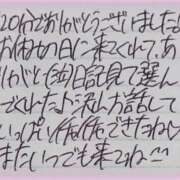 20分でありがとうございました！
お休みの日に来てくれて、あ
りがとう(油)日記見て選ん
でくれたよ沢山お話して
いっぱい仲仲できたねし
またいつでも来てね^^